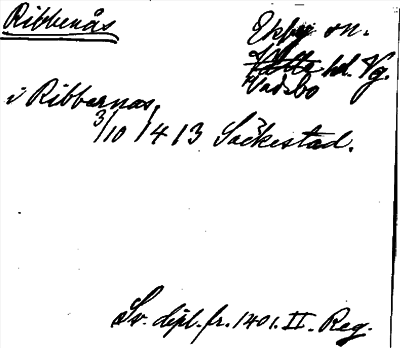 Ribbenås
Ekby sn.
hd. Vg.
Vadsbo
i Ribbernas,
3/10 1413 Säckestad.
Sv. dipl. fr. 1401. II. Reg.